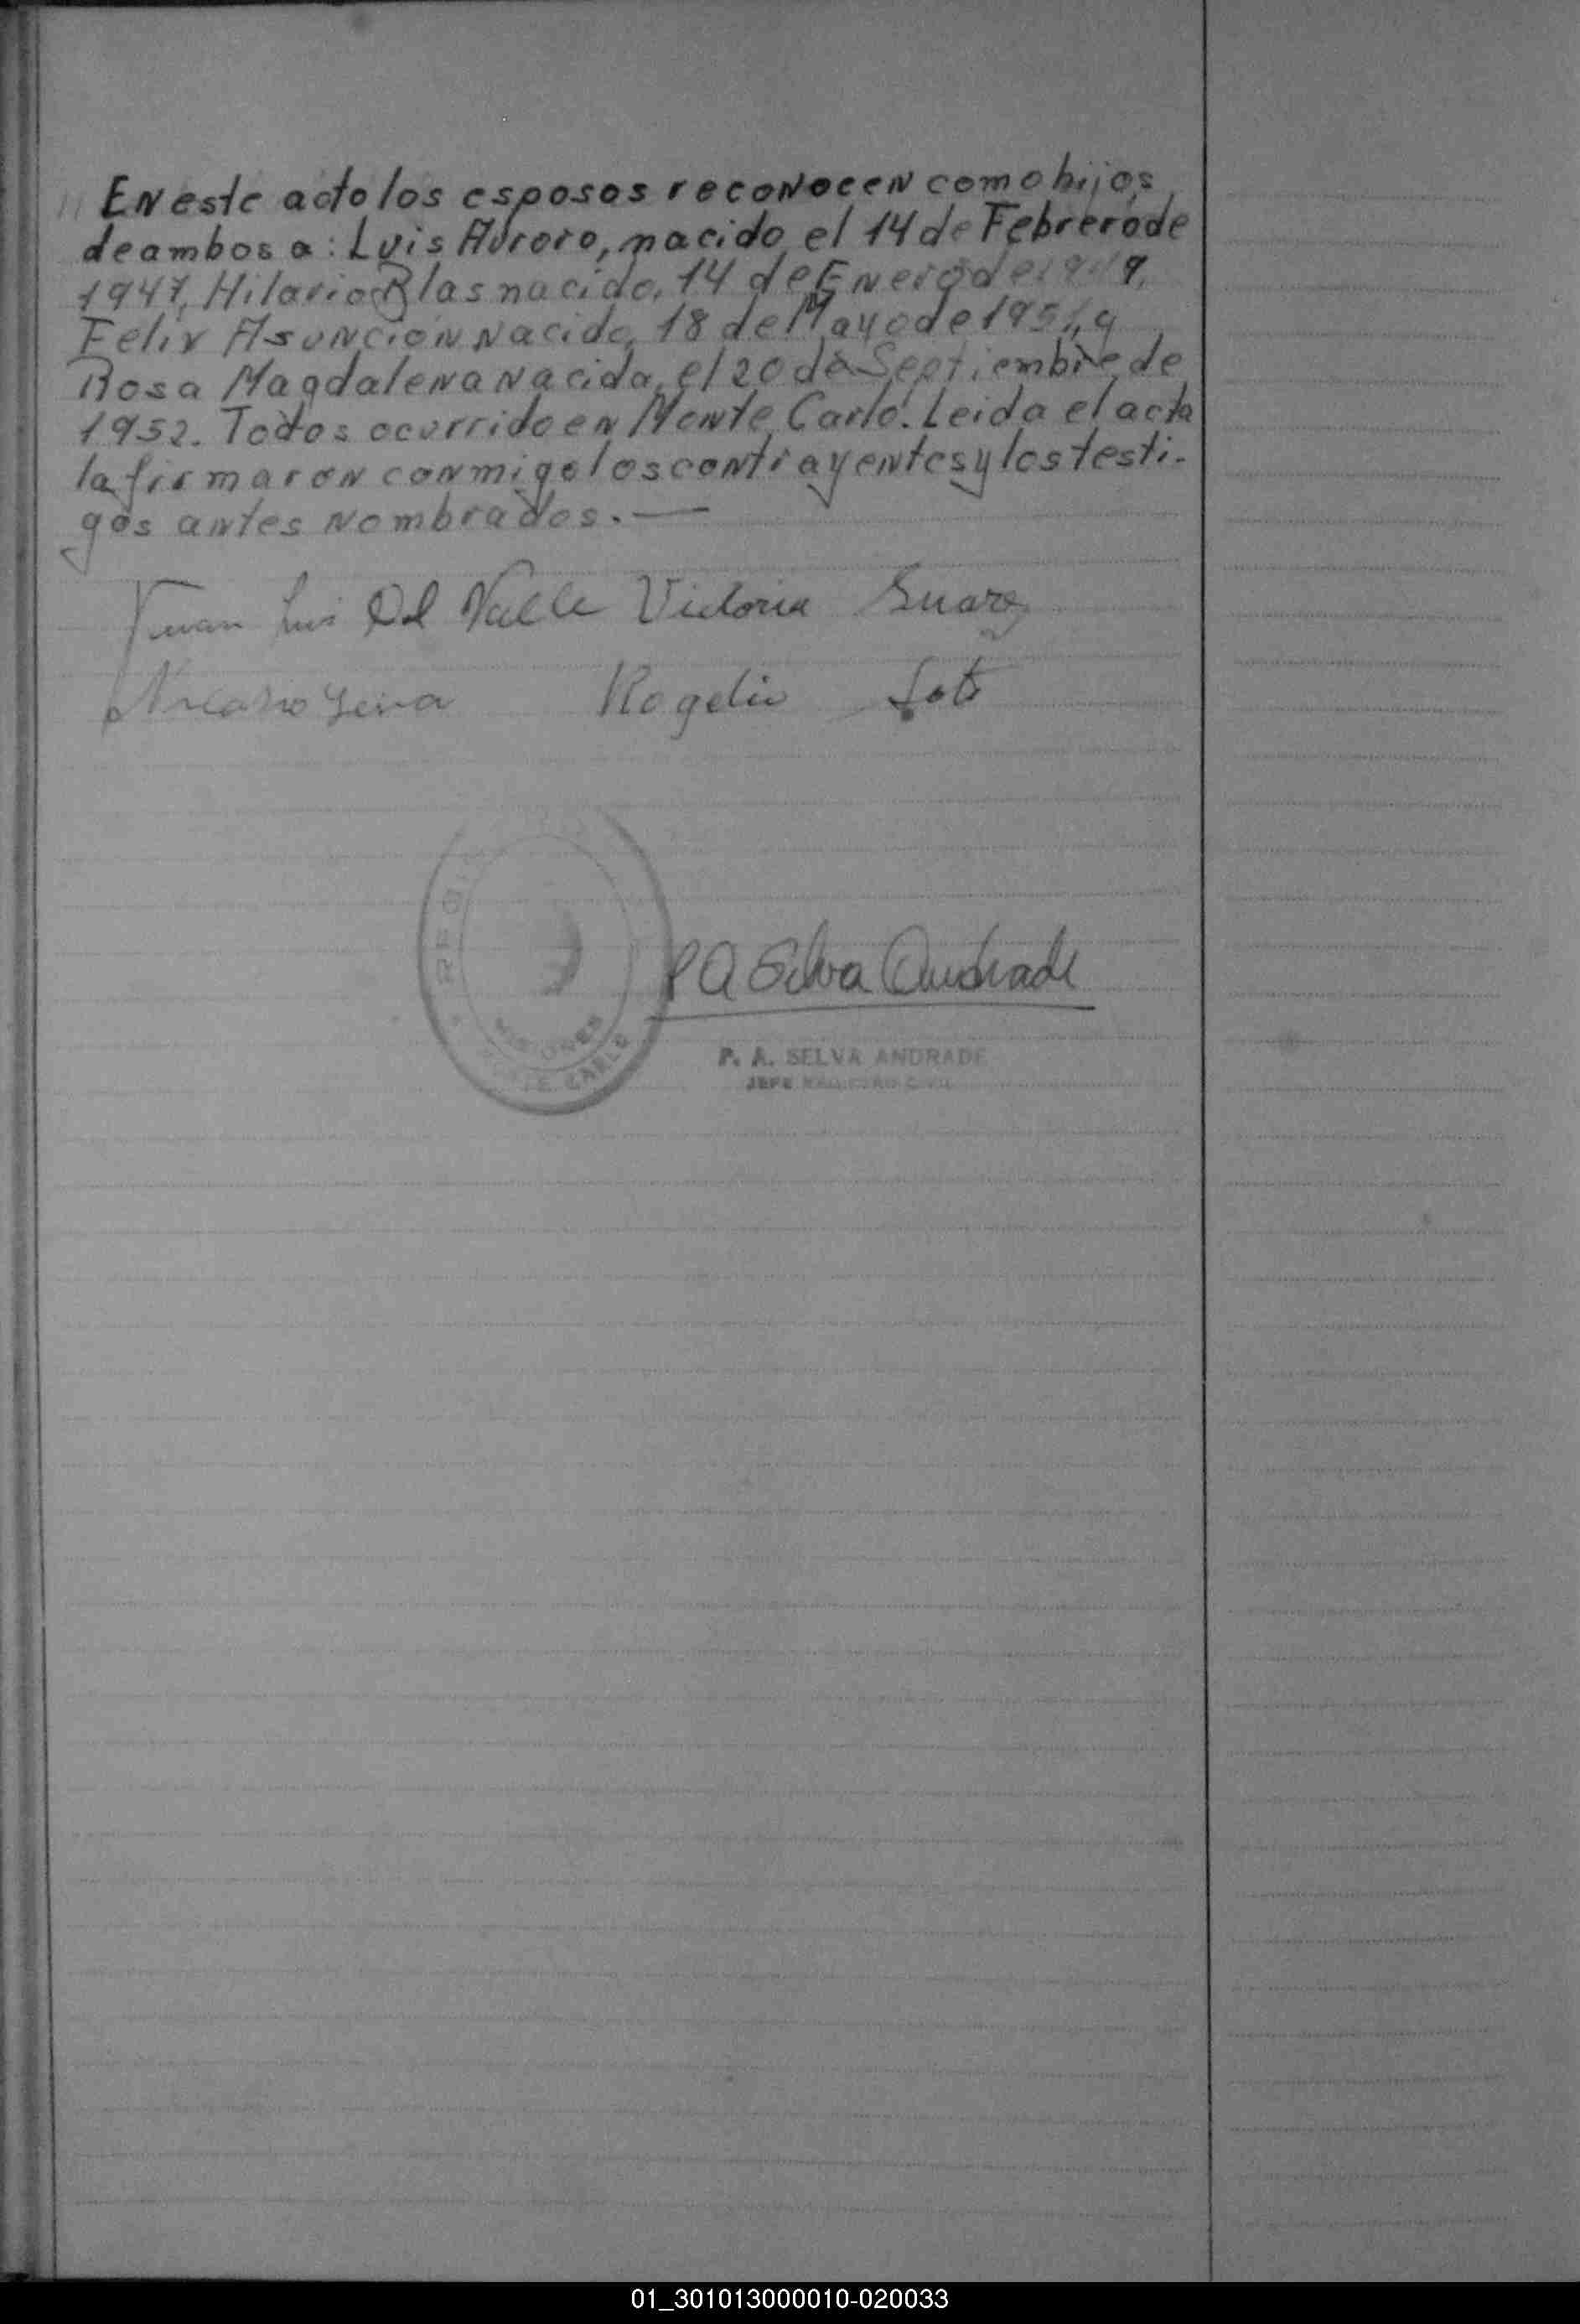 En este acto los esposos reconocen como hijos
de ambos a: Luis Auroro, nacido el 14 de Febrero de
1947, Hilario Blas nacido, 14 de Enero de 1949,
Felix Asunción nacido, 18 de Mayo de 1951, y
Rosa Magdalena nacida, el 20 de Septiembre de
1952. Todos ocurrido en Monte Carlo. Leida el acta
la firmaron conmigo los contrayentes y los testi-
gos antes nombrados.—
Juan Luis Del Valle Victoria Suarez
Rogelio Soto
REGI
MISIONES
MONTE CARLO
P A Selva Andrade
P. A. SELVA ANDRADE
JEFE REGISTRO CIVIL
01_301013000010-020033